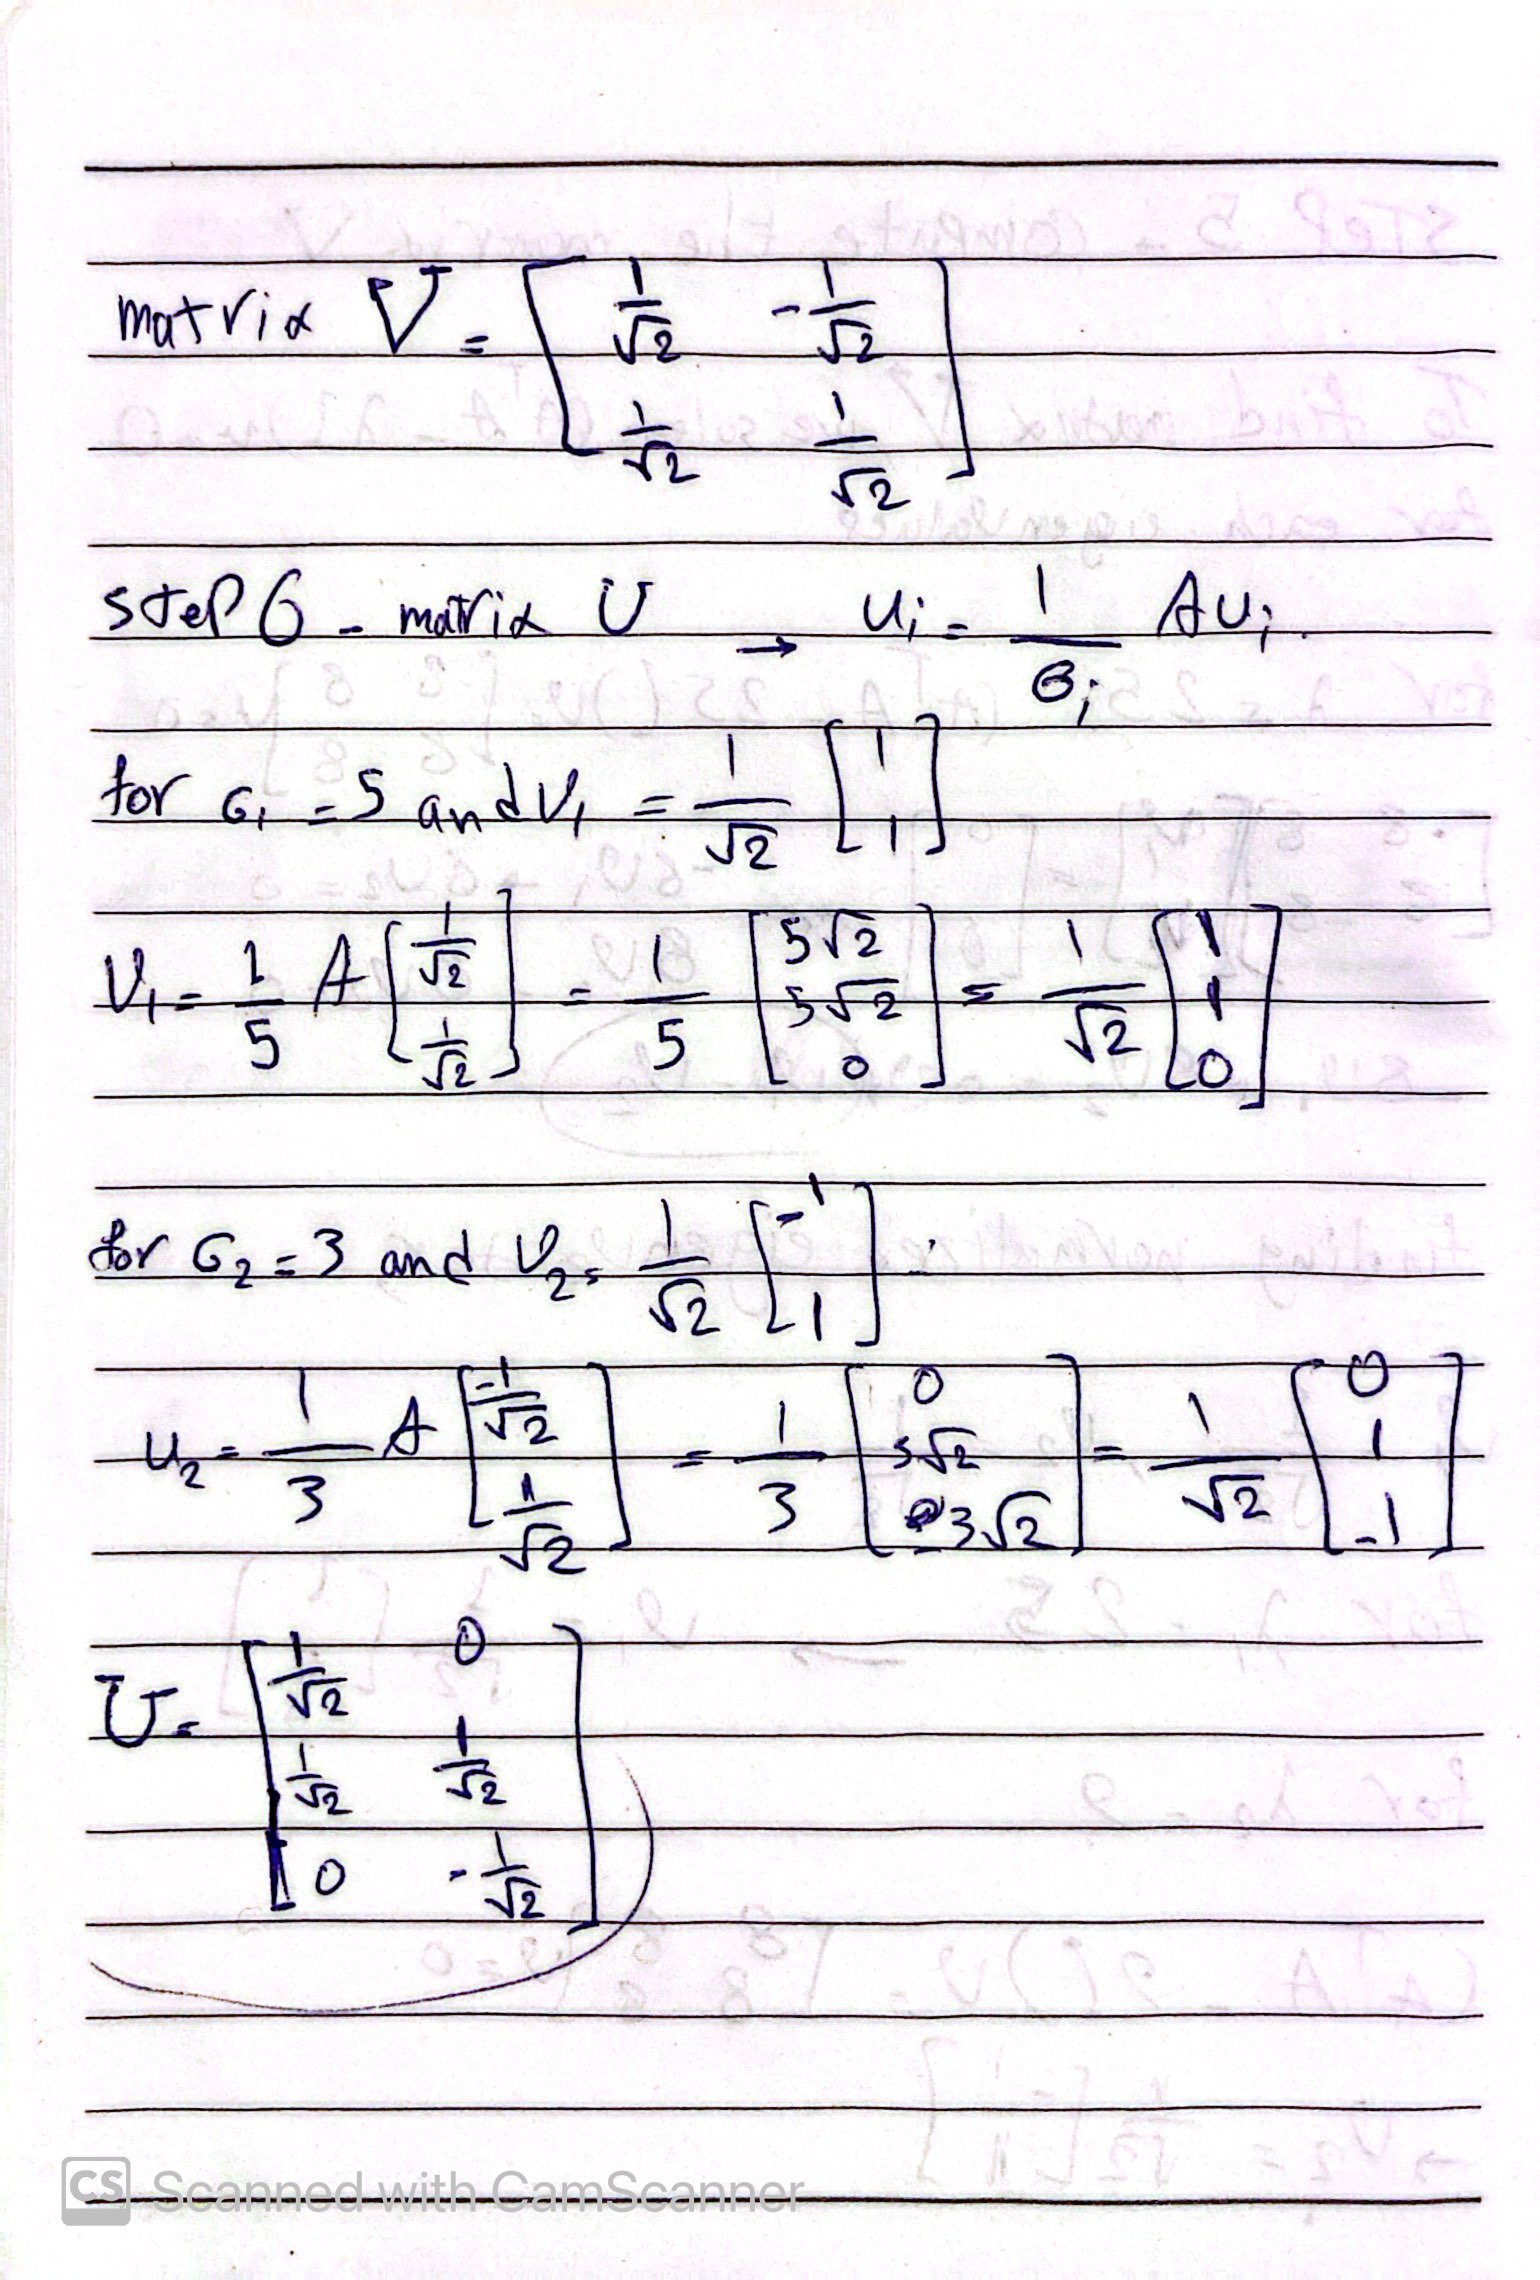 matrix V = [ 1/√2 -1/√2
1/√2 1/√2 ]
step 6 - matrix U → ui = 1/σi Aui.
for σ1 = 5 and V1 = 1/√2 [ 1
1 ]
V1 = 1/5 A [ 1/√2 1/√2 ] = 1/5 [ 5√2 5√2 0 ] = 1/√2 [ 1 1 0 ]
for σ2 = 3 and V2 = 1/√2 [ -1 1 ] :
u2 = 1/3 A [ -1/√2 1/√2 ] = 1/3 [ 0 3√2 -3√2 ] = 1/√2 [ 0 1 -1 ]
U = [ 1/√2 0
1/√2 1/√2
0 -1/√2 ]
CS Scanned with CamScanner